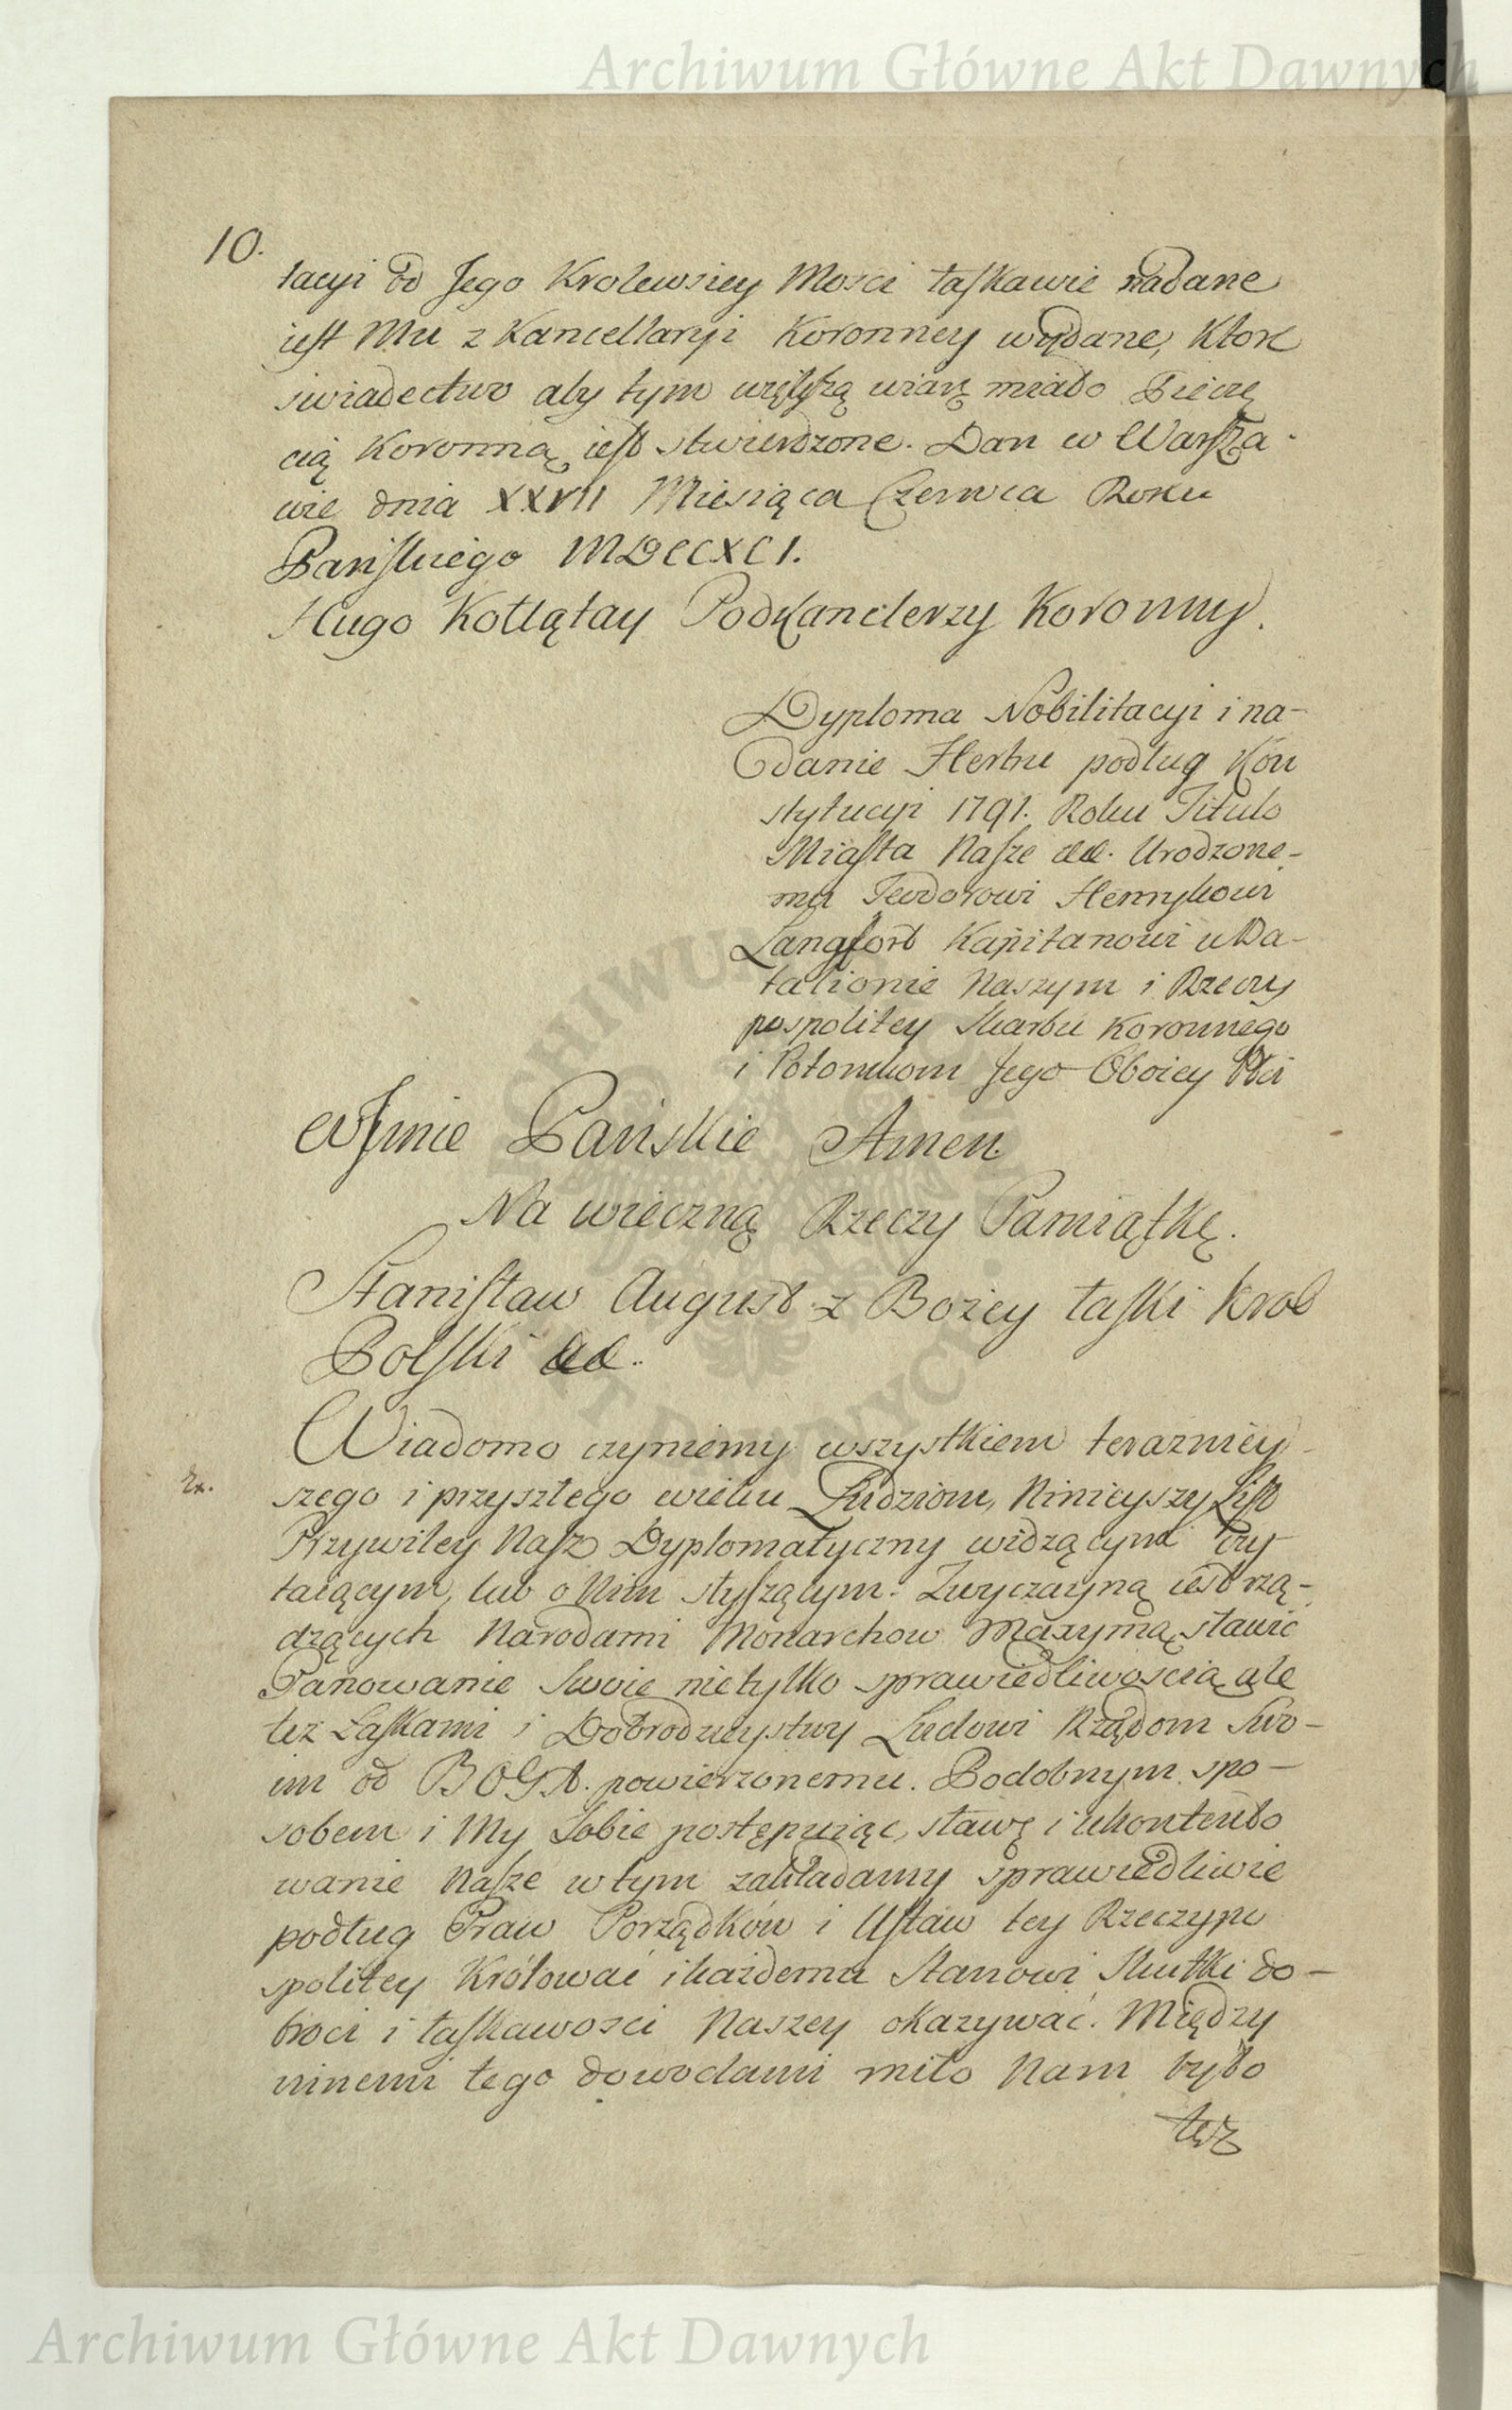 Archiwum Główne Akt Dawnych
10.
tacyi od Jego Krolewsiey Mosci łaskawie nadane
iest Mu z Kancellaryi Koronney wydane, Ktore
swiadectwo aby tym więkſzą wiarę miało Pieczę
cią Koronną iest stwierdzone. Dan w Warsza-
wie dnia XXVII Miesiąca Czerwca Roku
Pańskiego MDCCXCI.
Hugo Kołłątay Podkanclerzy Koronny.
Dyploma Nobilitacyi i na-
danie Herbu podług Kon
stytucyi 1791. Roku Titulo
Miasta Nasze &&. Urodzone-
mu Teodorowi Henrykowi
Langfort Kapitanowi w Ba-
talionie Naszym i Rzeczy
pospolitey Skarbu Koronnego
i Potomkom Jego Oboiey Płci
W Jmie Pańskie Amen.
Na wieczną Rzeczy Pamiątkę.
Stanisław August z Bożey łaski Krol
Polski &&.
Wiadomo czyniemy wszystkiem terazniey-
Ex.
szego i przyszłego wieku Ludziom, Ninieyszy List
Przywiley Nasz Dyplomatyczny widzącym Czy-
taiącym, lub o Nim słyszącym. Zwyczayną iest rzą-
dzących Narodami Monarchow Maxymą, stawić
Panowanie Swoie nietylko sprawiedliwoscią ale
też Łaskami i Dobrodzieystwy Ludowi Rządom Swo-
im od BOGA. powierzonemu. Podobnym spo-
sobem i My Sobie postępuiąc, sławę i ukontento
wanie Nasze w tym zakładamy sprawiedliwie
podług Praw Porządków i Ustaw tey Rzeczypo
spolitey Królować i każdemu Stanowi Skutki do-
broci i łaskawosci Naszey okazywać. Między
innemi tego dowodami miło Nam było
też
Archiwum Główne Akt Dawnych